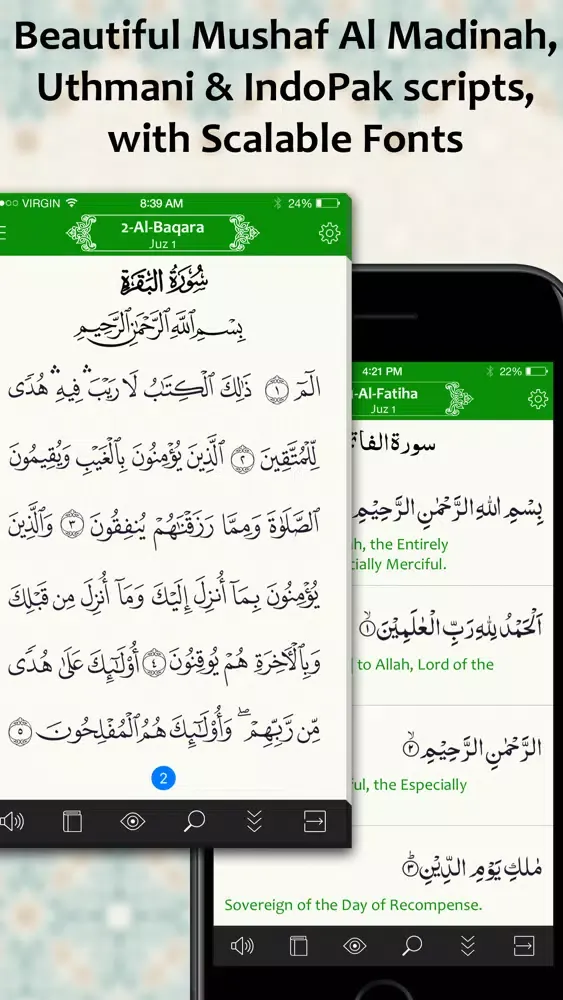 Beautiful Mushaf Al Madinah,
Uthmani & IndoPak scripts,
with Scalable Fonts
VIRGIN 8:39 AM 24%
2-Al-Baqara
Juz 1
سُورَةُ البَقَرَةِ
بِسْمِ ٱللَّهِ ٱلرَّحْمَٰنِ ٱلرَّحِيمِ
الٓمٓ ١ ذَٰلِكَ ٱلْكِتَٰبُ لَا رَيْبَ ۛ فِيهِ ۛ هُدًى
لِّلْمُتَّقِينَ ٢ ٱلَّذِينَ يُؤْمِنُونَ بِٱلْغَيْبِ وَيُقِيمُونَ
ٱلصَّلَوٰةَ وَمِمَّا رَزَقْنَٰهُمْ يُنفِقُونَ ٣ وَٱلَّذِينَ
يُؤْمِنُونَ بِمَآ أُنزِلَ إِلَيْكَ وَمَآ أُنزِلَ مِن قَبْلِكَ
وَبِٱلْءَاخِرَةِ هُمْ يُوقِنُونَ ٤ أُو۟لَٰٓئِكَ عَلَىٰ هُدًى
مِّن رَّبِّهِمْ ۖ وَأُو۟لَٰٓئِكَ هُمُ ٱلْمُفْلِحُونَ ٥
2
4:21 PM 22%
-Al-Fatiha
Juz 1
سورة الفات
بِسْمِ اللهِ الرَّحْمٰنِ الرَّحِيْمِ
h, the Entirely
cially Merciful.
اَلْحَمْدُ لِلهِ رَبِّ الْعٰلَمِيْنَ ١
to Allah, Lord of the
الرَّحْمٰنِ الرَّحِيْمِ ٢
ful, the Especially
مٰلِكِ يَوْمِ الدِّيْنِ ٣
Sovereign of the Day of Recompense.